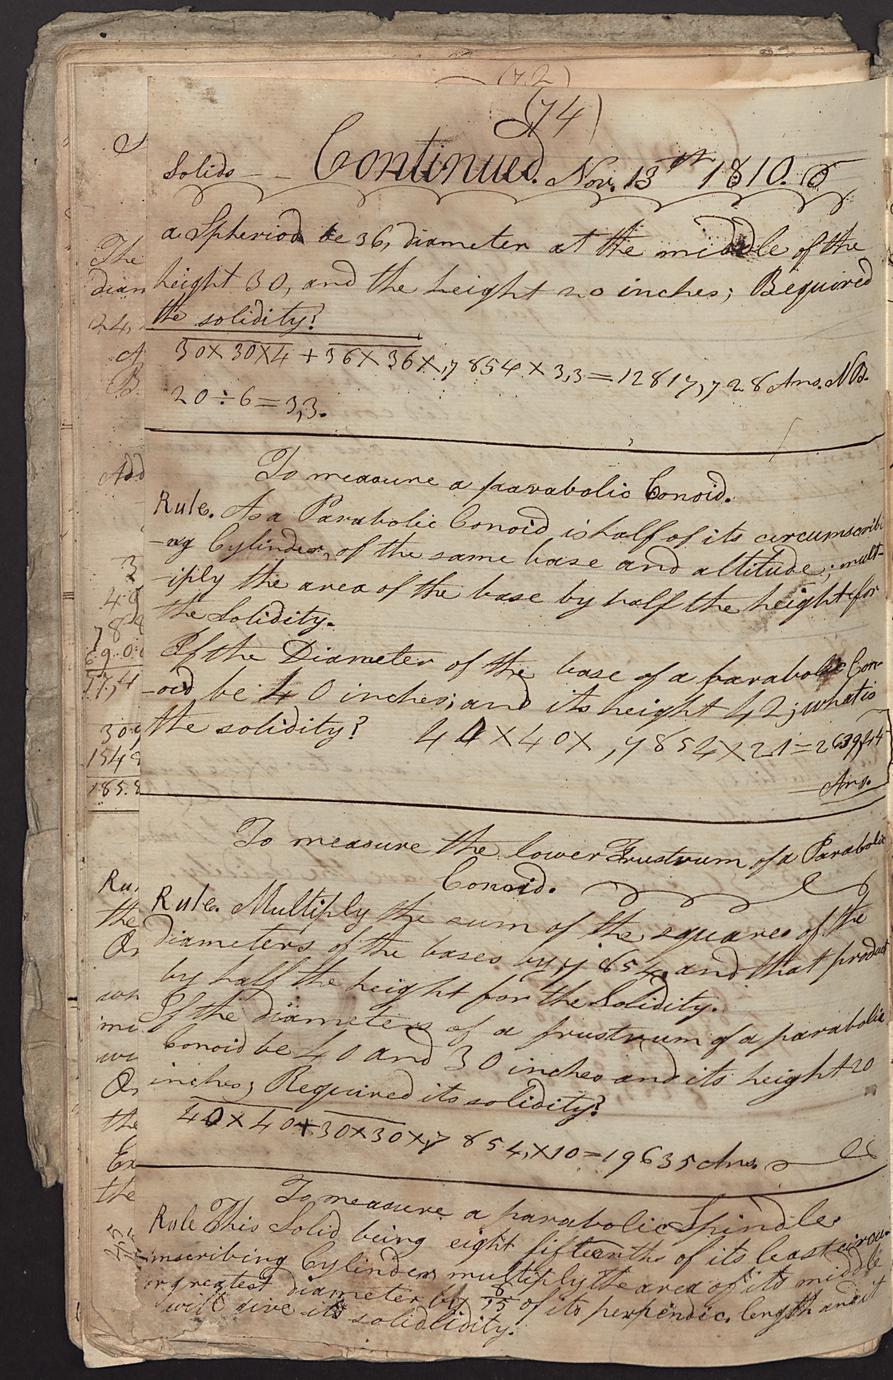 (72)
(74)
Solids Continued. Nov. 13th 1810.
a Spheriod be 36, diameter at the middle of the
height 30, and the height 20 inches; Required
the solidity?
30×30×4+36×36×,7854×3,3=12817,728 Ans. NB.
20÷6=3,3.
To measure a parabolic Conoid.
Rule. As a Parabolic Conoid is half of its circumscrib-
-ing Cylinder, of the same base and altitude; mult-
-iply the area of the base by half the height for
the Solidity.
If the Diameter of the base of a parabolic Con-
-oid be 40 inches; and its height 42; what is
the solidity? 44×40×,7854×21=26389,44
Ans.
To measure the lower Frustrum of a Parabolic
Conoid.
Rule. Multiply the sum of the squares of the
diameters of the bases by ,7854, and that product
by half the height for the Solidity.
If the diameters of a frustrum of a parabolic
Conoid be 40 and 30 inches and its height 20
inches; Required its solidity?
40×40+30×30×,7854,×10=19635 Ans.
To measure a parabolic Spindle
Rule This Solid being eight fifteenths of its least circu-
-mscribing Cylinder, multiply the area of its middle
or greatest diameter by 8/15 of its perpendic. length and it
will give its solidlidity.